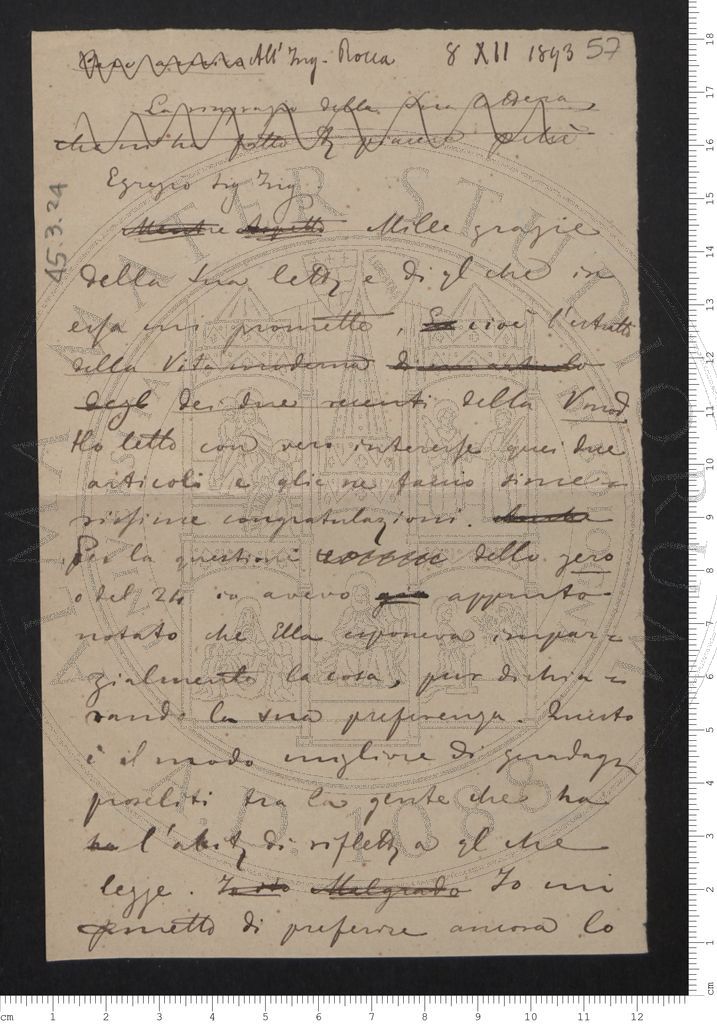 All' Ing. Rocca 8 XII 1893 57
La ringrazio della Sua lettera,
che mi ha fatto piacere
Egregio Sig Ing.
45.3.24
Mentre Aspetto Mille grazie
della Sua lett e di ql che in
essa mi promette, cioè l'estratto
della Vita moderna di un articolo
degl dei due recenti della
Ho letto con vero interesse quei due
articoli e glie ne faccio since=
rissime congratulazioni. Anche
Per la questione dello zero
o del 24 io avevo già appunto
notato che Ella esponeva impar=
zialmente la cosa, pur dichia=
rando la sua preferenza. Questo
è il modo migliore di guadagn
proseliti tra la gente che ha
ha l'abit di riflett a ql che
legge. Malgrado Io mi
permetto di preferire ancora lo